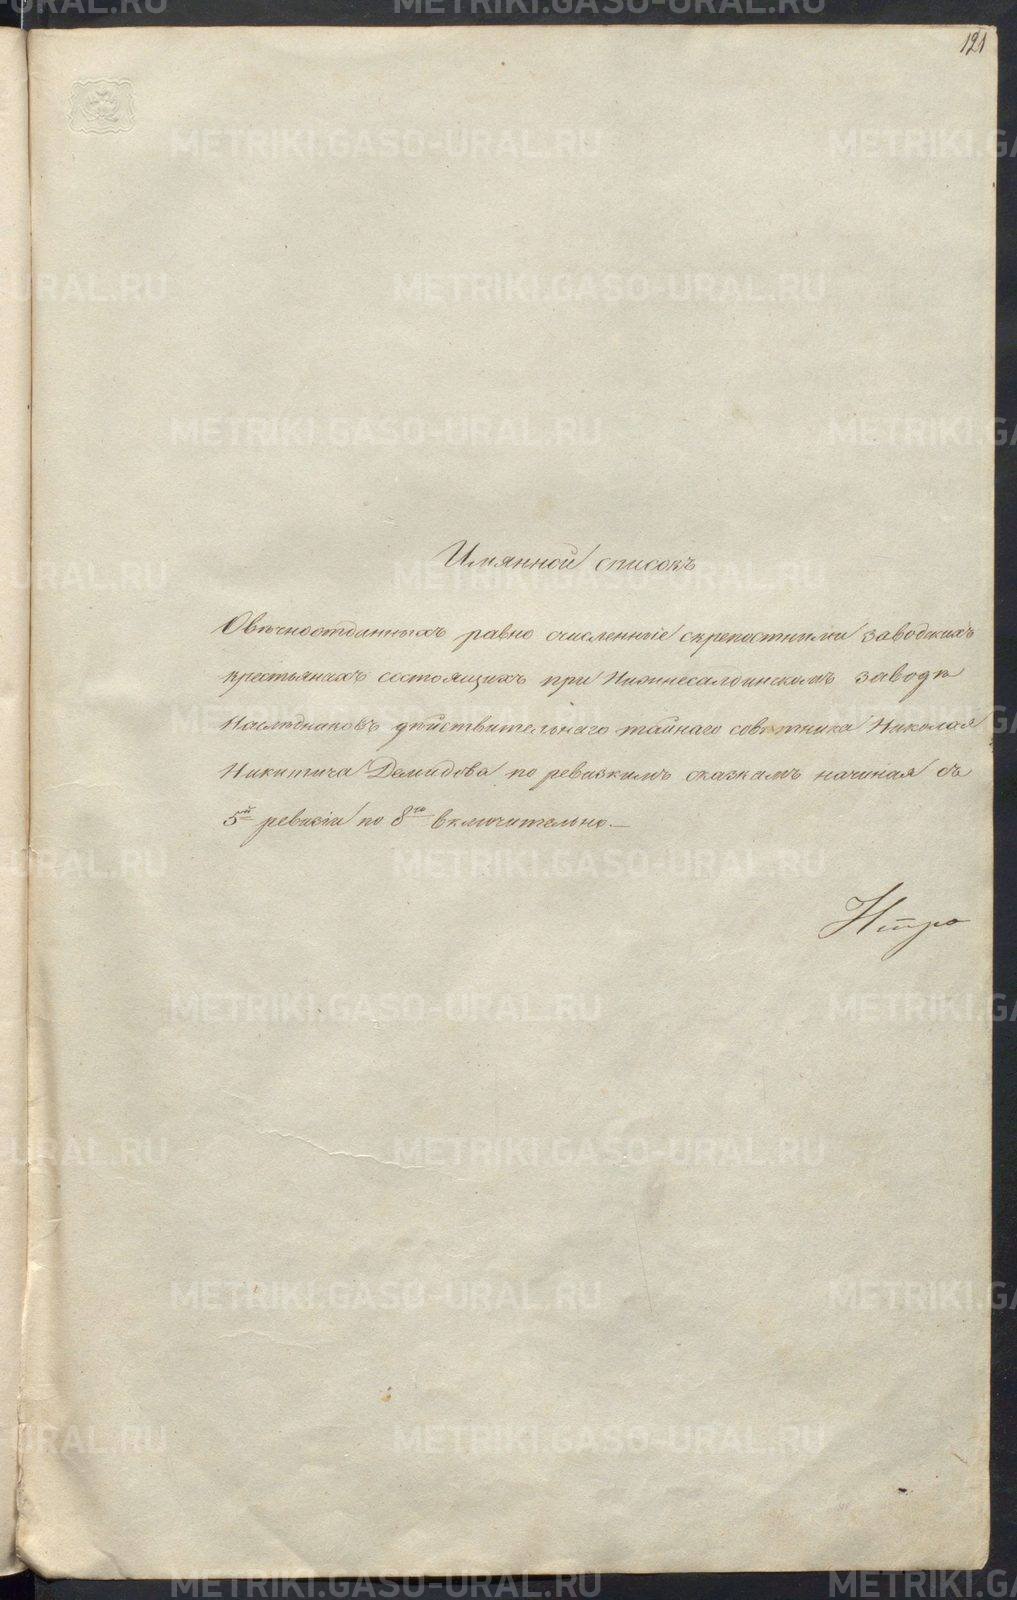 121
Имянной списокъ
Овѣчноотданныхъ равно счисленные скрепостными заводскихъ
крестьянахъ состоящихъ при Нижнесалдинскомъ заводѣ
Наслѣдниковъ дѣйствительнаго тайнаго совѣтника Николая
Никитича Демидова по ревизкимъ сказкамъ начиная съ
5й ревизіи по 8ю включительно.—
METRIKI.GASO-URAL.RU